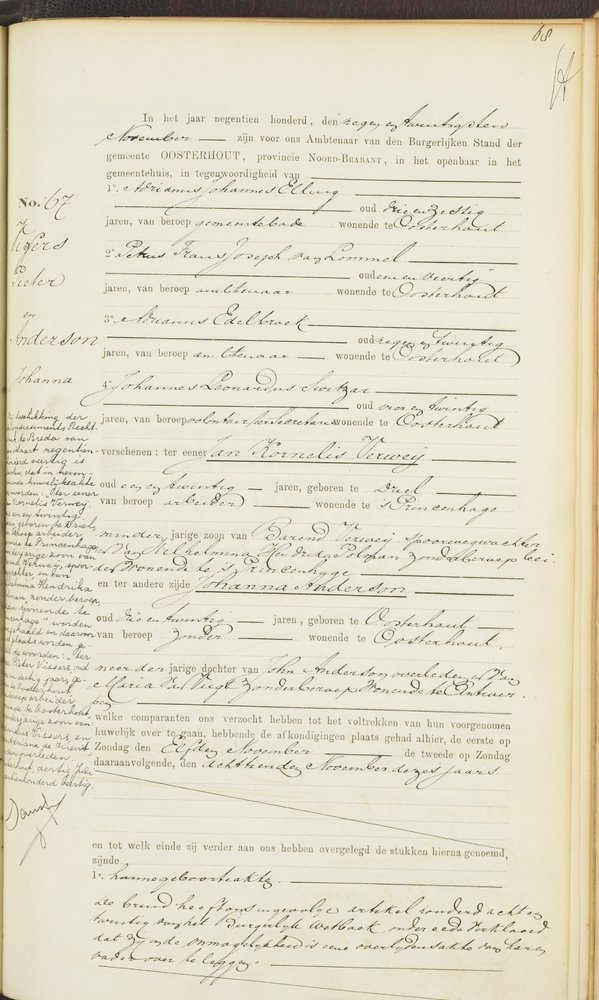 68
In het jaar negentien honderd, den negen en twintigsten
November zijn voor ons Ambtenaar van den Burgerlijken Stand der
gemeente OOSTERHOUT, provincie NOORD-BRABANT, in het openbaar in het
gemeentehuis, in tegenwoordigheid van
1e. Adrianus Johannes Elling
oud drie en zestig
jaren, van beroep gemeentebode wonende te Oosterhout
2e. Petrus Frans Joseph van Lommel
oud een en veertig
jaren, van beroep ambtenaar wonende te Oosterhout
3e. Adrianus Edelbroek
oud negen en twintig
jaren, van beroep ambtenaar wonende te Oosterhout
4e. Johannes Leonardus
oud en twintig
jaren, van beroep volontair ter Secretarie wonende te Oosterhout
verschenen: ter eener Jan Kornelis Verweij
oud een en twintig jaren, geboren te Driel
van beroep arbeider wonende te 's Princenhage
minder jarige zoon van Barend Verweij Spoorwegwachter
en van Wilhelmina Hendrika Polman zonder beroep bei
des wonende te 's Princenhage
en ter andere zijde Johanna Anderson
oud drie en twintig jaren, geboren te Oosterhout
van beroep zonder wonende te Oosterhout,
meerder jarige dochter van John Anderson overleden en van
Maria van Vugt zonder beroep wonende te Antwer-
pen
welke comparanten ons verzocht hebben tot het voltrekken van hun voorgenomen
huwelijk over te gaan, hebbende de afkondigingen plaats gehad alhier, de eerste op
Zondag den Elfden November de tweede op Zondag
daaraanvolgende, den achttienden November dezes jaars
en tot welk einde zij verder aan ons hebben overgelegd de stukken hierna genoemd,
zijnde
1e. hunne geboorteakten.
De bruid heeft ons ingevolge artikel honderd acht en
twintig van het Burgerlijk Wetboek onder eede verklaard
dat zij in de onmogelijkheid is eene overlijdensakte van haren
vader over te leggen.
No. 67
Vissers
Pieter
en
Anderson
Johanna
beschikking der
Recht
bank te Breda van
negentien
honderd veertig is
dat in neven
huwelijksakte
worden: "Ter eener
Kornelis Verweij
een en twintig
geboren te Driel,
beroep arbeider,
te Princenhage
minderjarige zoon van
Verweij, spoor
en van
Wilhelmina Hendrika
Polman, zonder beroep,
wonende te
Princenhage" worden
en daarvoor
worden ge-
worden: "Ter
Pieter Vissers, oud
dertig jaren, ge-
te Oosterhout,
beroep arbeider,
te Oosterhout,
meerderjarige zoon van
Vissers, en
overleden.
dertig
negentienhonderd veertig.